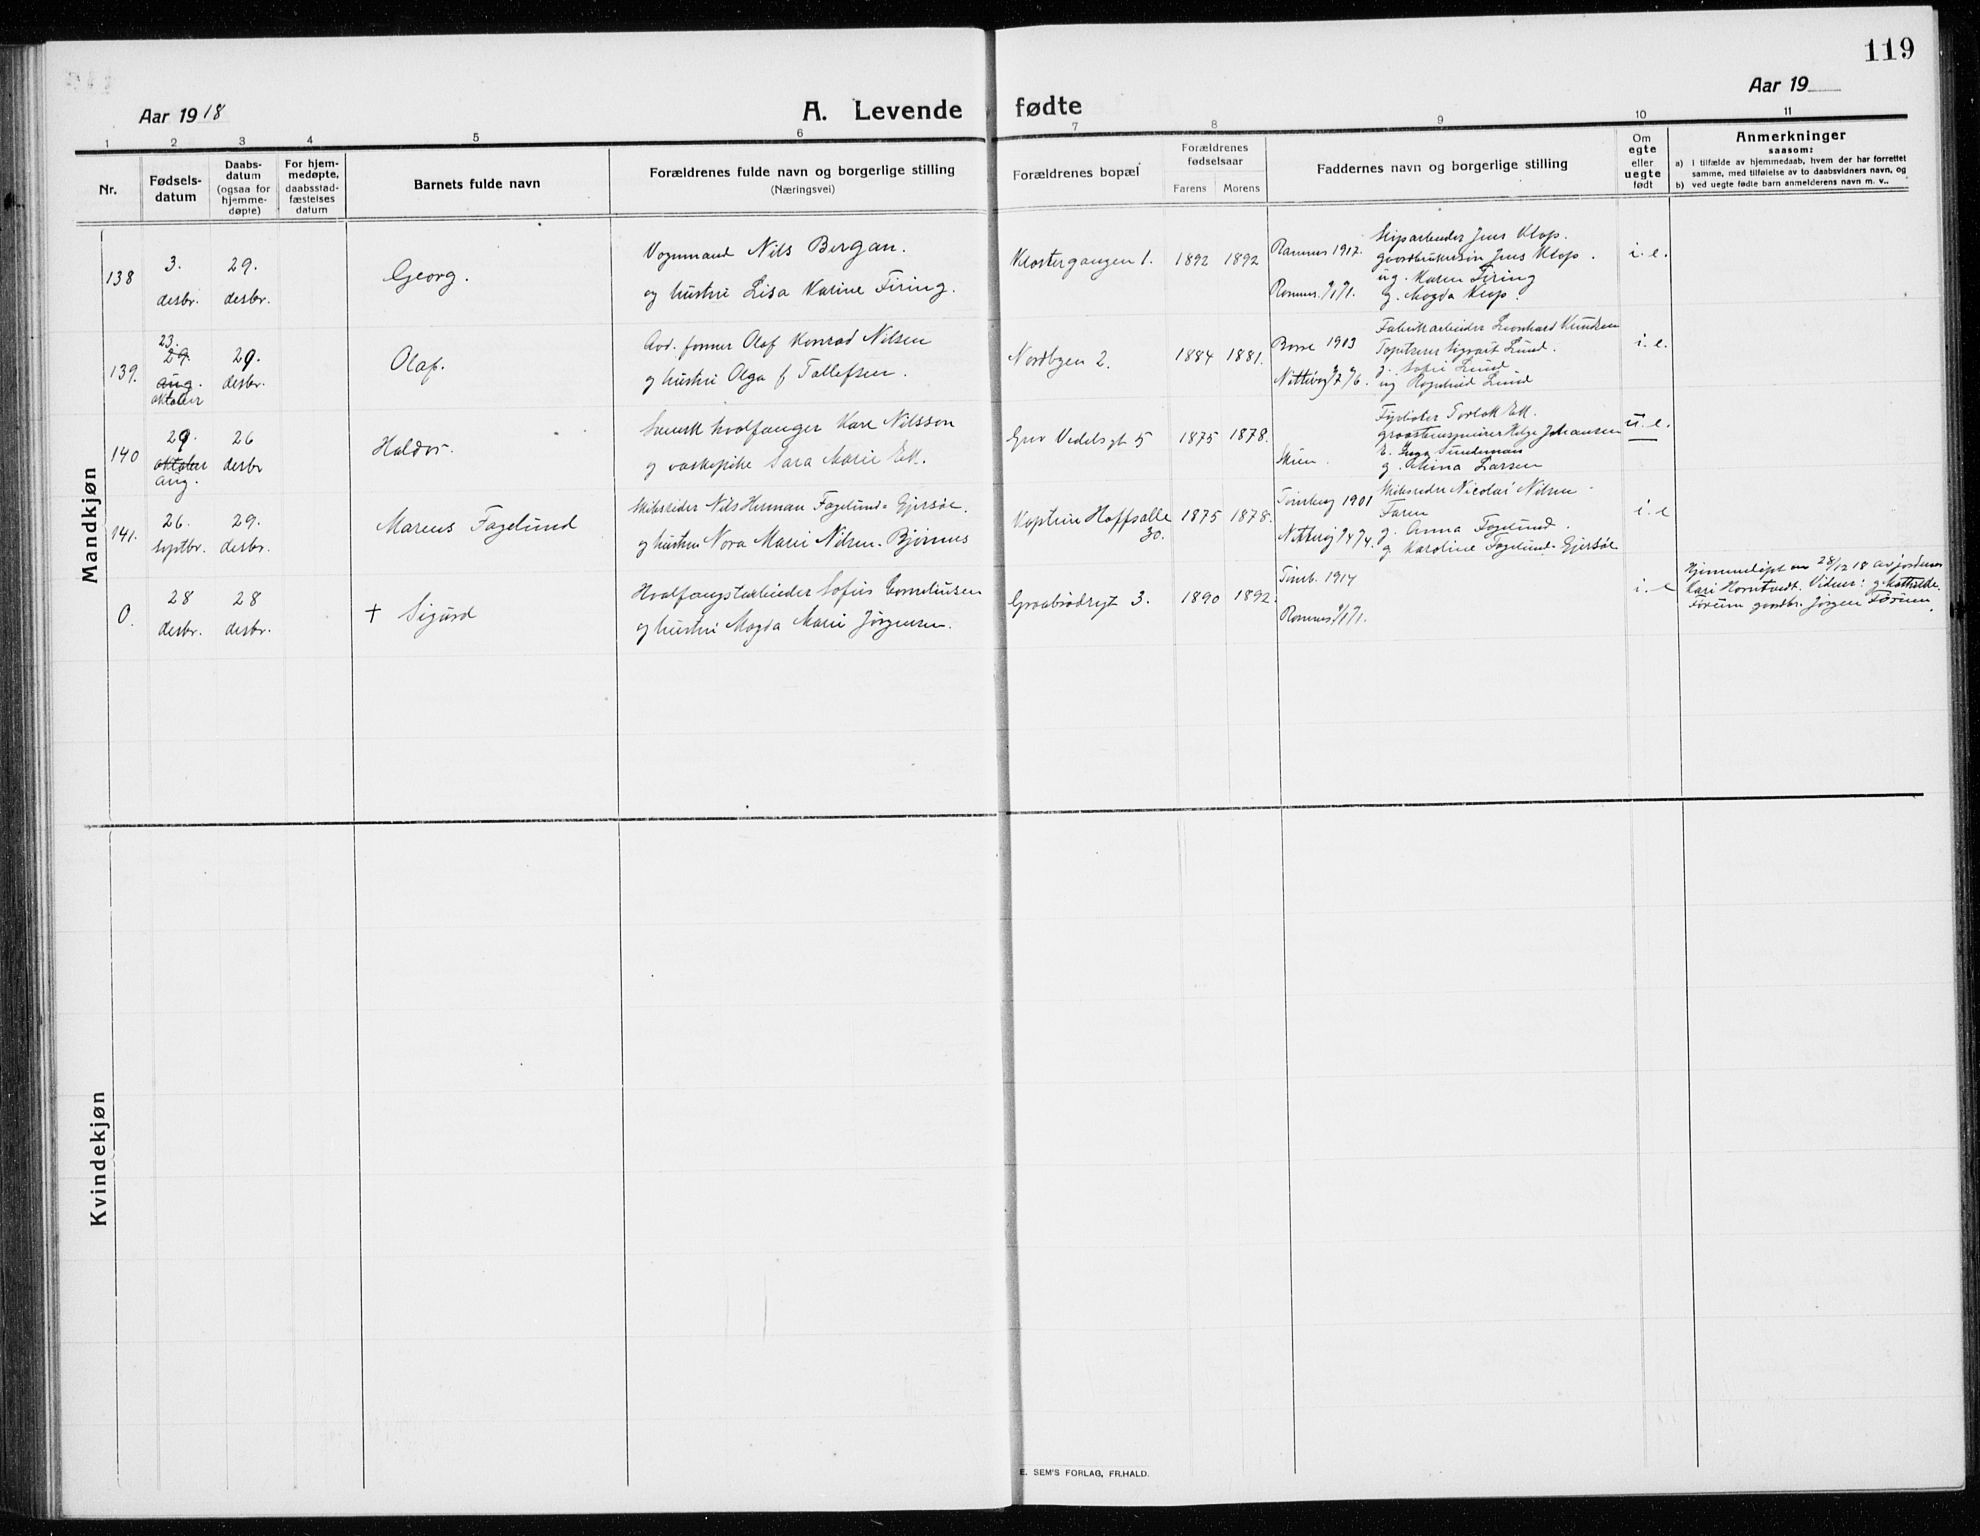 119
Aar 1918
A. Levende fødte
Aar 19
1 2 3 4 5 6 7 8 9 10 11
Nr.
Fødsels-
datum
Daabs-
datum
(ogsaa for
hjemme-
døpte)
For hjem-
medøpte,
daabsstad-
fæstelses
datum
Barnets fulde navn
Forældrenes fulde navn og borgerlige stilling
(Næringsvei)
Forældrenes bopæl
Forældrenes
fødselsaar
Farens Morens
Faddernes navn og borgerlige stilling
Om
egte
eller
uegte
født
Anmerkninger
saasom:
a) I tilfælde av hjemmedaab, hvem der har forrettet
samme, med tilføielse av to daabsvidners navn, og
b) ved uegte fødte barn anmelderens navn m. v..
Mandkjøn
138
3.
desbr.
29.
desbr.
Georg.
Vognmand Nils Bergan.
og hustru Lisa Karine Firing.
Klostergangen 1.
1892 1892
Ramnes 1912.
Ramnes 1/1 1/1.
Skipsarbeider Jens Klop.
gaardbrukersøn Jens Klop.
ug. Maren Firing
g. Magda Klop.
i. e.
139.
23.
29.
aug.
oktober
29.
desbr.
Olaf.
former Olaf Konrad Nilsen
og hustru Olga f Tollefsen.
Nordbyen 2.
1884 1881.
Borre 1913
Fabrikarbeider Leonhard Knudsen
Tapetserer Sigvart Lund.
g. Sofie Lund
ug Ragnhild Lund
i. e.
140
29.
oktober
aug.
26
desbr
Haldor
Svensk hvalfanger Kare Nilsson
og vaskepike Sara Marie Ek.
Grev Vedelsgt 5
1875 1878.
Skien.
Fyrbøter Torlak Ek.
Helge Johansen
E. Inga Sundeman
g. Mina Larsen
u. e.
141.
26.
septbr.
29.
desbr.
Marcus Fagelund
Nils Herman Fagelund Gjersøe.
og hustru Nora Marie Nilsen-Bjørnes
Kaptein Hoffsalle
30.
1875 1878.
Tønsberg 1901
Nicolai Nilsen
Faren
g. Anna Fagelund.
g Karoline Fagelund-Gjersøe
i. e
0.
28
desbr.
28
desbr.
+ Sigurd
Hvalfangstarbeider Sofus Corneliussen
og hustru Magda Marie Jørgensen.
Graabrødregt 3.
1890 1892.
Tønsb. 1914
Ramnes 1/1 1/1.
i. e
Hjemmedøpt den 28/12 18 av jordmor
Kari Horntvedt. Vidner: g. Mathilde
Førum gaardbr. Jørgen Førum.
Kvindekjøn
E. SEM'S FORLAG, FR.HALD.